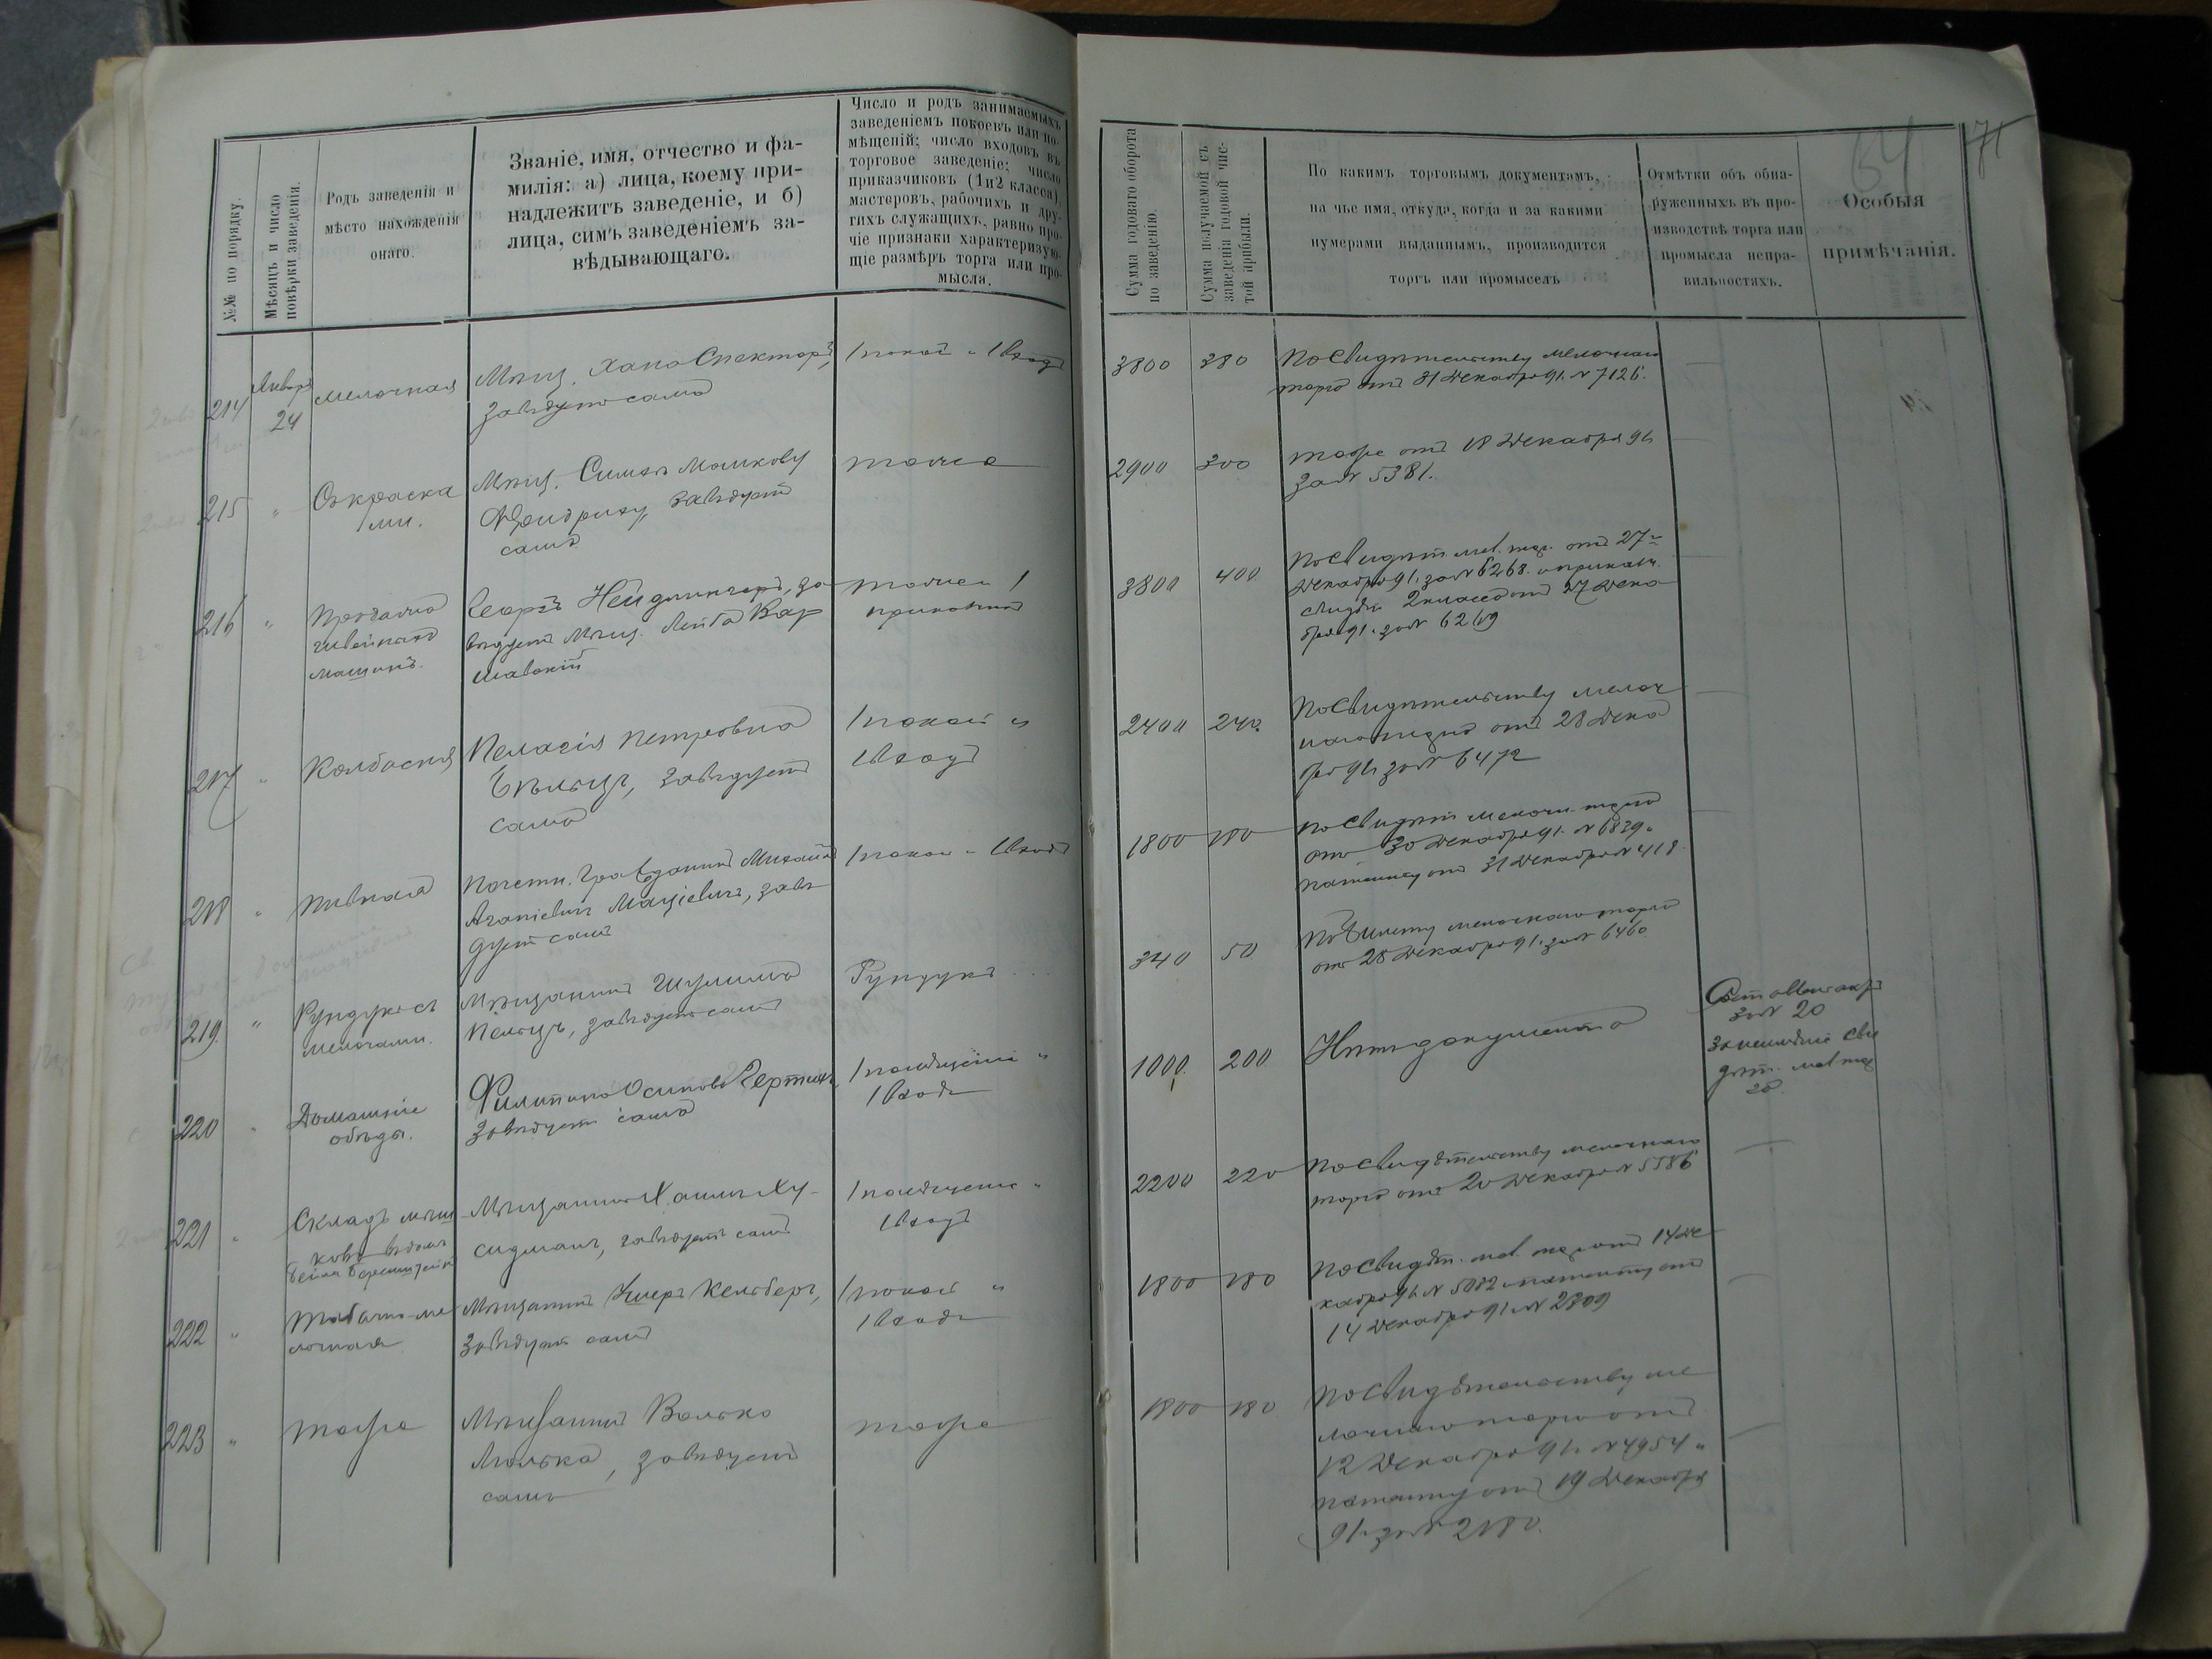 №№ по порядку.
Мѣсяцъ и число
повѣрки заведенія.
Родъ заведенія и
мѣсто нахожденія
онаго.
Званіе, имя, отчество и фа-
милія: а) лица, коему при-
надлежитъ заведеніе, и б)
лица, симъ заведеніемъ за-
вѣдывающаго.
Число и родъ занимаемыхъ
заведеніемъ покоевъ или по-
мѣщеній; число входовъ въ
торговое заведеніе; число
приказчиковъ (1 и 2 класса),
мастеровъ, рабочихъ и дру-
гихъ служащихъ, равно про-
чіе признаки характеризую-
щіе размѣръ торга или про-
мысла.
Сумма годоваго оборота
по заведенію.
Сумма получаемой съ
заведенія годовой чис-
той прибыли.
По какимъ торговымъ документамъ,
на чье имя, откуда, когда и за какими
нумерами выданнымъ, производится
торгъ или промыселъ
Отмѣтки объ обна-
руженныхъ въ про-
изводствѣ торга или
промысла непра-
вильностяхъ.
Особыя
примѣчанія.
64
71
214
Января
24
мелочная
Мѣщ. Хана Спекторъ,
завѣдуетъ сама
1 покой и 1 входъ
3800
380
По свидѣтельству мелочнаго
торга отъ 31 Декабря 91. № 7126.
215
"
Съ краска
ми.
Мѣщ. Симонъ Мошковъ
завѣдуетъ
самъ
тоже
2900
300
тоже отъ 18 Декабря 91
за № 5381.
216
"
Продажа
швейныхъ
машинъ.
Георгъ Нейдлингеръ, за
вѣдуетъ Мѣщ. Лейба Вар
шавскій
тоже и 1
приказчикъ
3800
400
По свидѣт. мел. тор. отъ 27
Декабря 91. за № 6268. и приказч.
свидѣт. 2 класса отъ 27 Дека
бря 91. за № 6269
217
"
Колбасня
Пелагія Петровна
завѣдуетъ
сама
1 покой и
1 входъ
2400
240
По свидѣтельству мелоч
наго торга отъ 28 Дека
бря 91. за № 6472
218
"
Пивная
Почетн. Гражданинъ Михаилъ
Мацѣевичъ, завѣ
дуетъ самъ
1 покой и 1 входъ
1800
180
По свидѣт. мелочн. торга
отъ 30 Декабря 91. № 6839 и
патенту отъ 31 Декабря № 418.
219.
"
Рундукъ съ
мелочами.
Мѣщанинъ Шулимъ
завѣдуетъ самъ
Рундукъ
340
50
По билету мелочнаго торга
отъ 28 Декабря 91. за № 6460.
220
"
Домашніе
обѣды.
Филипина Осипова
завѣдуетъ сама
1 помѣщеніе и
1 входъ
1000
200
Нѣтъ документа
Составленъ актъ
за № 20
за неимѣніе сви
дѣт. мел. тор
221
"
Складъ мѣш
ковъ въ домѣ
Мѣщанинъ Хаимъ Ху-
сидманъ, завѣдуетъ самъ
1 помѣщеніе и
1 входъ
2200
220
По свидѣтельству мелочнаго
торга отъ 20 Декабря № 5586
222
"
Табачно ме
лочная
Мѣщанинъ Ушеръ Кельберъ,
завѣдуетъ самъ
1 покой и
1 входъ
1800
180
По свидѣт. мел. тор. отъ 14 Де
кабря 91. № 5082 и патенту отъ
14 Декабря 91. № 2309
223
"
тоже
Мѣщанинъ Волько
завѣдуетъ
самъ
тоже
1800
180
По свидѣтельству ме
лочнаго торга отъ
12 Декабря 91. № 4954 и
патенту отъ 19 Декабря
91. за № 2180.